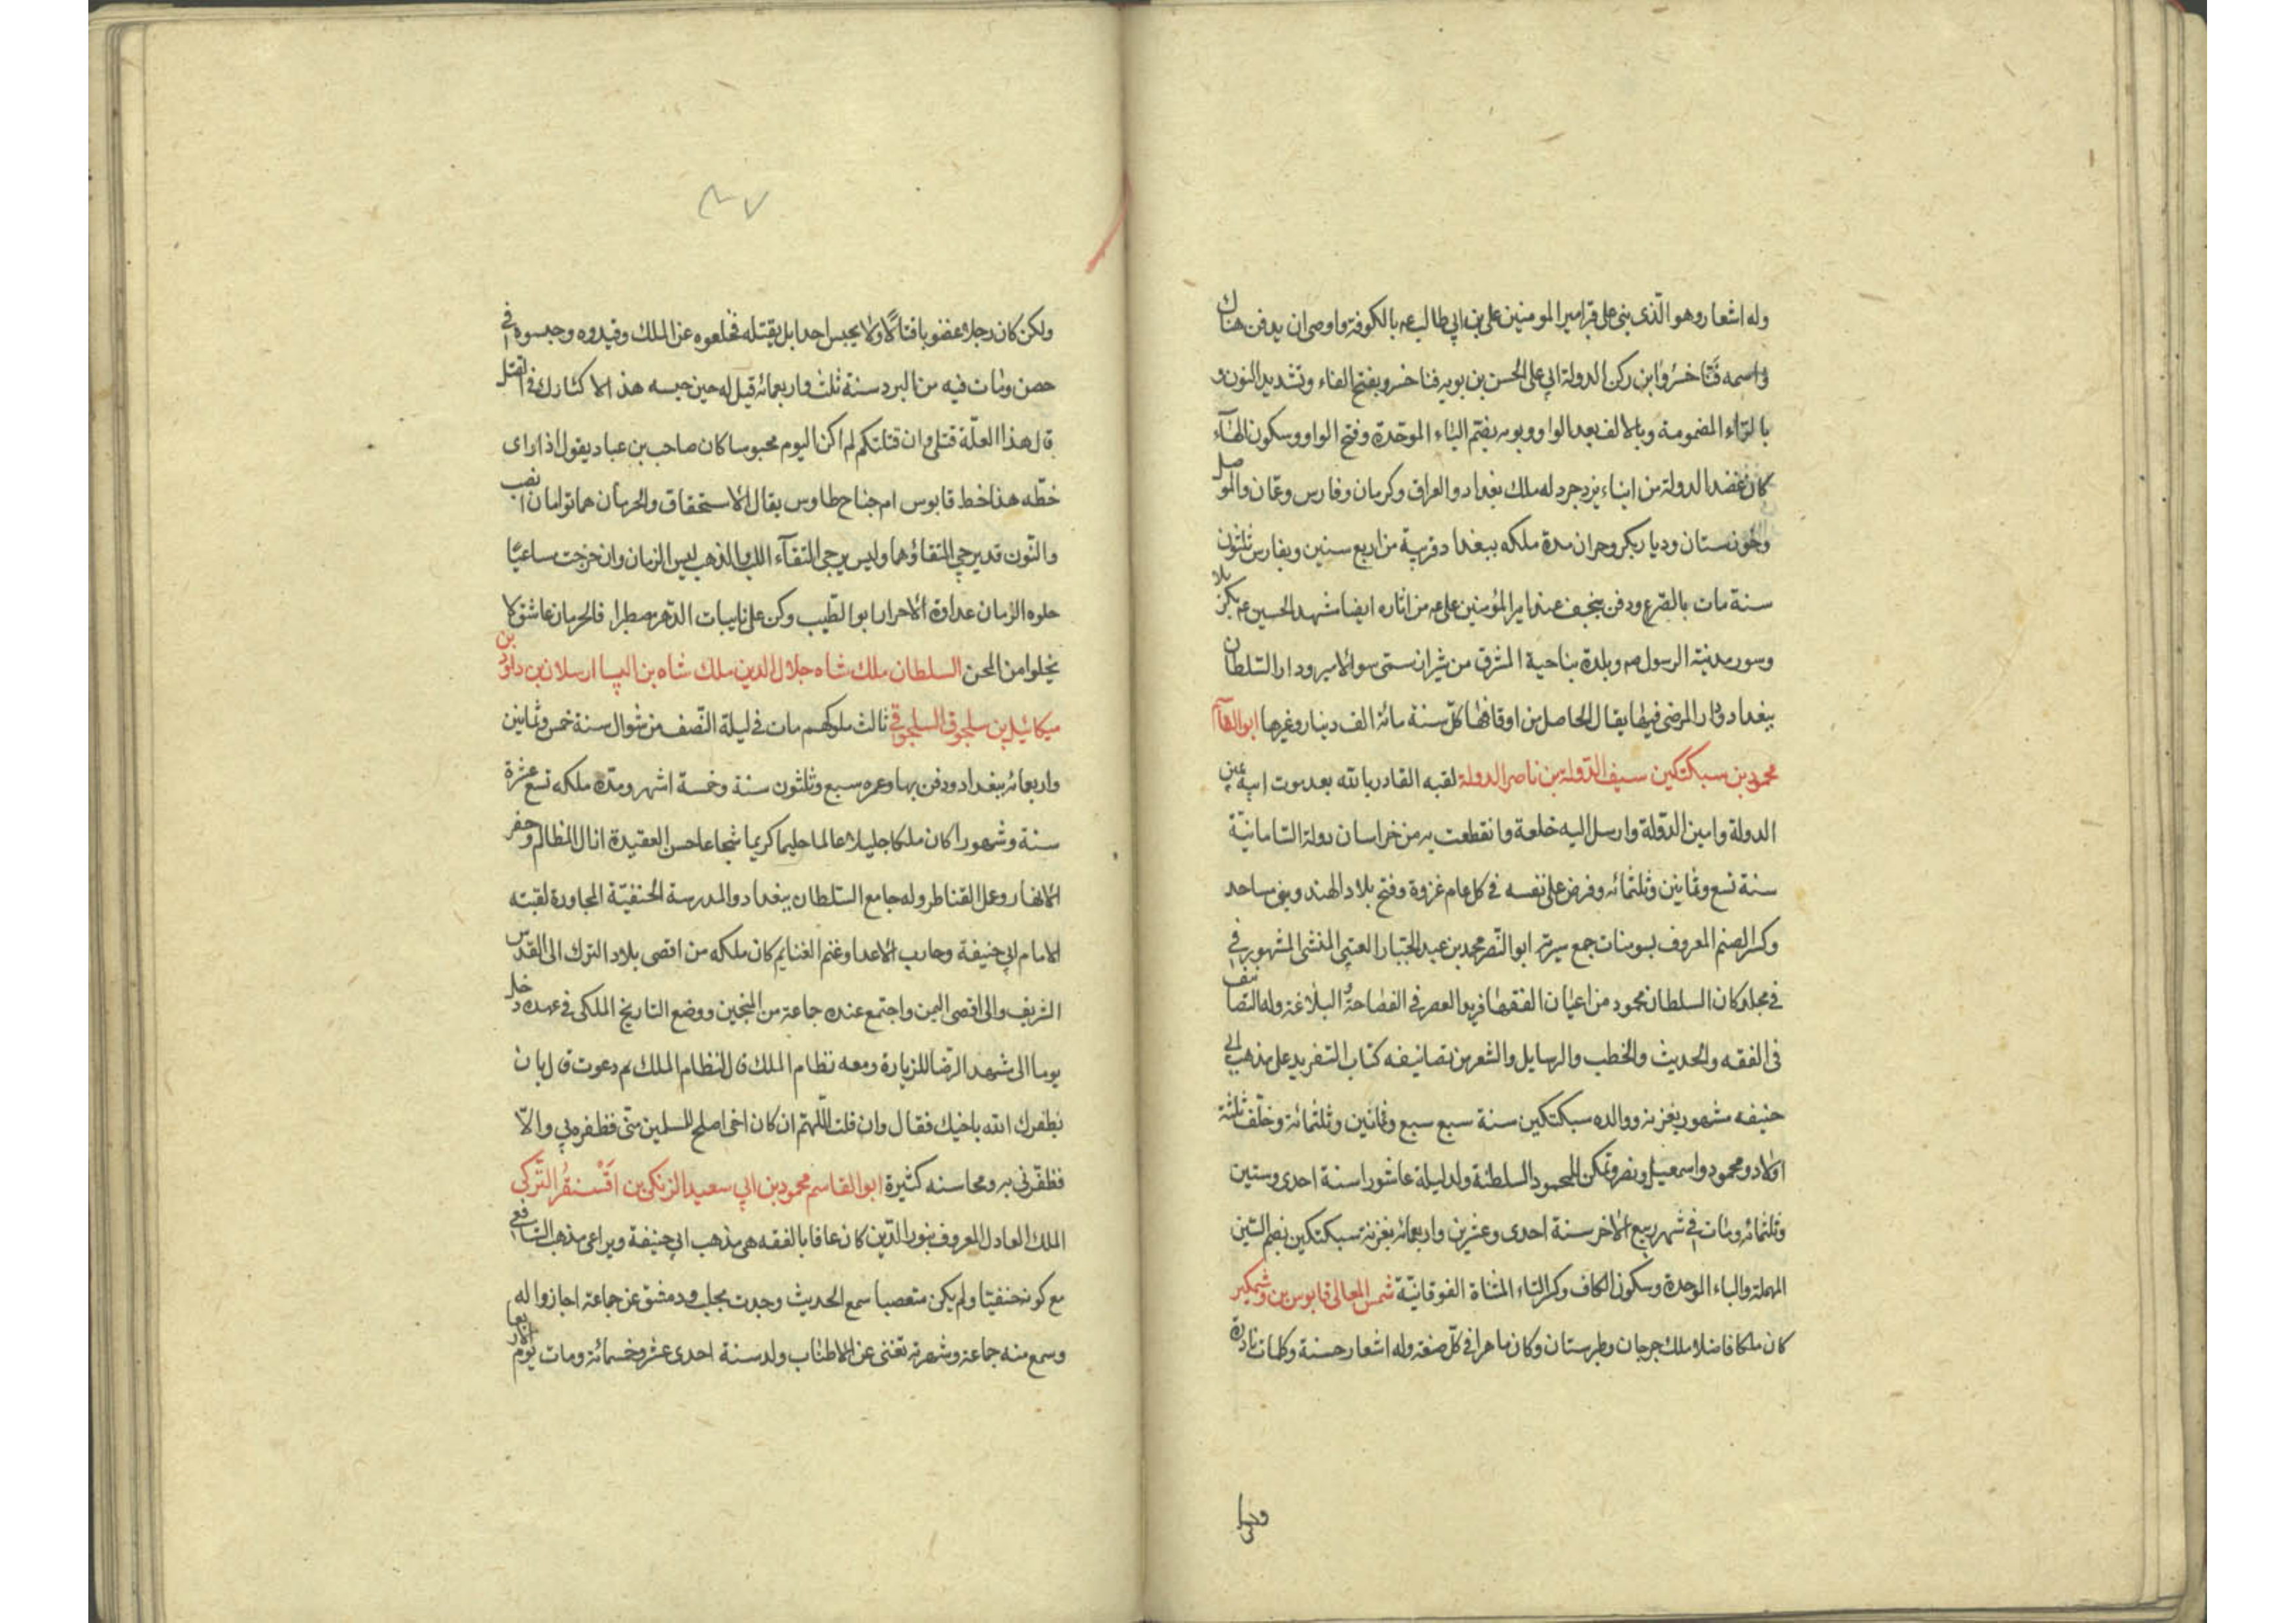 وله اشعار وهو الّذى بنى على قبر امير المومنين على بن ابي طالب عم بالكوفة واوصى ان يدفن هناك
واسمه فنّا خسرو ابن ركن الدولة ابي على الحسن بن بويه فنا خسرو بفتح الفاء وتشديد النون و
بالرّاء المضمومة وبالالف بعد الواو وبويه بضم الباء الموحّدة وفتح الواو وسكون الهاء
كان عضد الدولة من ابناء يزدجرد له ملك بغداد والعراق وكرمان وفارس وعمّان والموصل
وخوزستان وديار بكر وحران مدة ملكه ببغداد قريبة من اربع سنين وبفارس ثلثون
سنة مات بالصّرع ودفن بنجف عند امير المؤمنين على عم من اثاره ايضا مشهد الحسين عم بكربلا
وسور مدينة الرسول صم وبلدة بناحية المشرق من شيراز ستى سوالامير ودار السّلطان
ببغداد ودار المرضى فيها يقال الحاصل من اوقافها كلّ سنة مائة الف دينار وغيرها ابو القاسم
محمود بن سبكتكين سيف الدّولة بن ناصر الدولة لقبه القادر بالله بعد موت ابيه يمين
الدولة وامين الدّولة وارسل اليه خلعة وانقطعت به من خراسان دولة السّامانيّة
سنة تسع وثمانين وثلثمائه وفرض على نفسه فى كل عام غزوة وفتح بلاد الهند وبنى مساجد
وكسر الصنم المعروف بسومنات جمع سيرته ابو النّصر محمد بن عبد الجبّار العتبى المنشى المشهور فى
فى مجلد كان السلطان محمود من اعيان الفقها فريد العصر فى الفصاحة و البلاغة وله التصانيف
فى الفقه والحديث والخطب والرسايل والشعر من تصانيفه كتاب التفريد على مذهب ابى
حنيفه مشهور بغزنه ووالده سبكتكين سنة سبع سبع وثمانين وثلثمائة وخلّف ثلثة
اولاد ومحمود واسمعيل ونصر وتمكن للمحمود السلطنة ولد ليلة عاشورا سنة احدى وستين
وثلثمائه ومات فى شهر ربيع الاخر سنة احدى وعشرين واربعمائه بغزنة سبكتكين بضم السّين
المهملة والباء الموحدة وسكون الكاف وكسر التاء المثناة الفوقانيّة شمس المعالى قابوس بن وشمكير
كان ملكا فاضلا ملك جرجان وطبرستان وكان ماهرا فى كلّ صنعة وله اشعار حسنة وكلمات نادرة
ولكن كان رجلا غضوبا قتالًا ولا يحبس احدا بل يقتله فخلعوه عن الملك وقيدوه وحبسوه فى
حصن ومات فيه من البرد سنة ثلث واربعمائه قيل له حين حبسه هذا لاكثارك فى القتل
قال هذا العلّة قتلى وان قتلتكم لم اكن اليوم محبوسا كان صاحب بن عباد يقول اذا راى
خطّه هذا خط قابوس ام جناح طاوس يقال الاستحقاق والحرمان هما توامان الضب
والنّون قد يرجى التقاؤهما وليس يرجى التقآء اللب والذهب ليس الزمان وان حرجت ساعيًا
حلوه الزمان عداوة الاحرار ابو الطّيب وكن على نايبات الدّهر مصطبرا فالحر مان عاشق لا
يخلوا من المحن السلطان ملك شاه جلال الدين ملك شاه بن الپ ارسلان بن داود بن
ميكائيل بن سلجوق السلجوقى ثالث ملوكهم مات فى ليلة النّصف من شوال سنة خمس وثمانين
واربعمائه ببغداد ودفن بها وعمره سبع وثلثون سنة وخمسة اشهر ومدّة ملكه تسع عشرة
سنة وشهورا كان ملكا جليلا عالما حليما كريما شجاعا حسن العقيدة ازال المظالم وحفر
الانهار وعمل القناطر وله جامع السّلطان ببغداد والمدرسة الحنفيّة المجاورة لقبته
الامام ابي حنيفة وحارب الاعدا وغنم الغنايم كان ملكه من اقصى بلاد الترك الى القدس
الشريف والى اقصى اليمن واجتمع عنده جماعة من المنجمين ووضع التاريخ الملكى فى عهده دخل
يوما الى مشهد الرّضا للزيارة ومعه نظام الملك قال لنظام الملك بم دعوت قال بان
يظفرك الله باخيك فقال وان قلت اللّهم ان كان اخى اصلح للمسلمين منّى فظفره بي والّا
فظفّرنى به ومحاسنه كثيرة ابو القاسم محمود بن ابي سعيد الزنكى بن اقسنقر التّركى
الملك العادل المعروف بنور الدّين كان عارفا بالفقه على مذهب ابي حنيفة ويراعى مذهب الشافعى
مع كونه حنفيّا ولم يكن متعصبا سمع الحديث وحدث بحلب ودمشق عن جماعة اجازوا له
وسمع منه جماعة وشهرته تغنى عن الاطناب ولد سنة احدى عشر وخمسمائة ومات يوم الاربعا